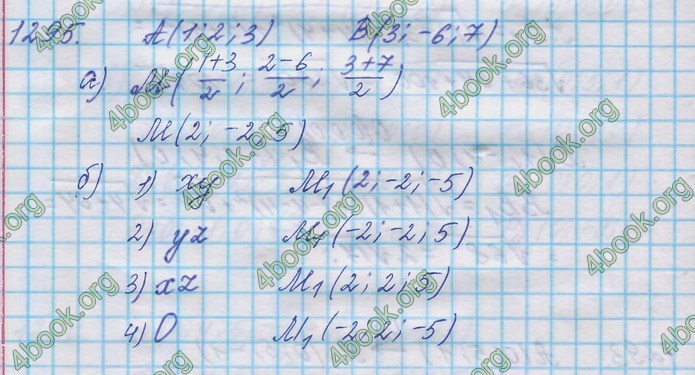 12.95. A(1; 2; 3) B(3; -6; 7)
а) M(1+3/2; 2-6/2; 3+7/2)
M(2; -2; 5)
б) 1) xy M₁(2; -2; -5)
2) yz M₁(-2; -2; 5)
3) xz M₁(2; 2; 5)
4) O M₁(-2; 2; -5)
4book.org
4book.org
4book.org
4book.org
4book.org
4book.org
4book.org
4book.org
4book.org
4book.org